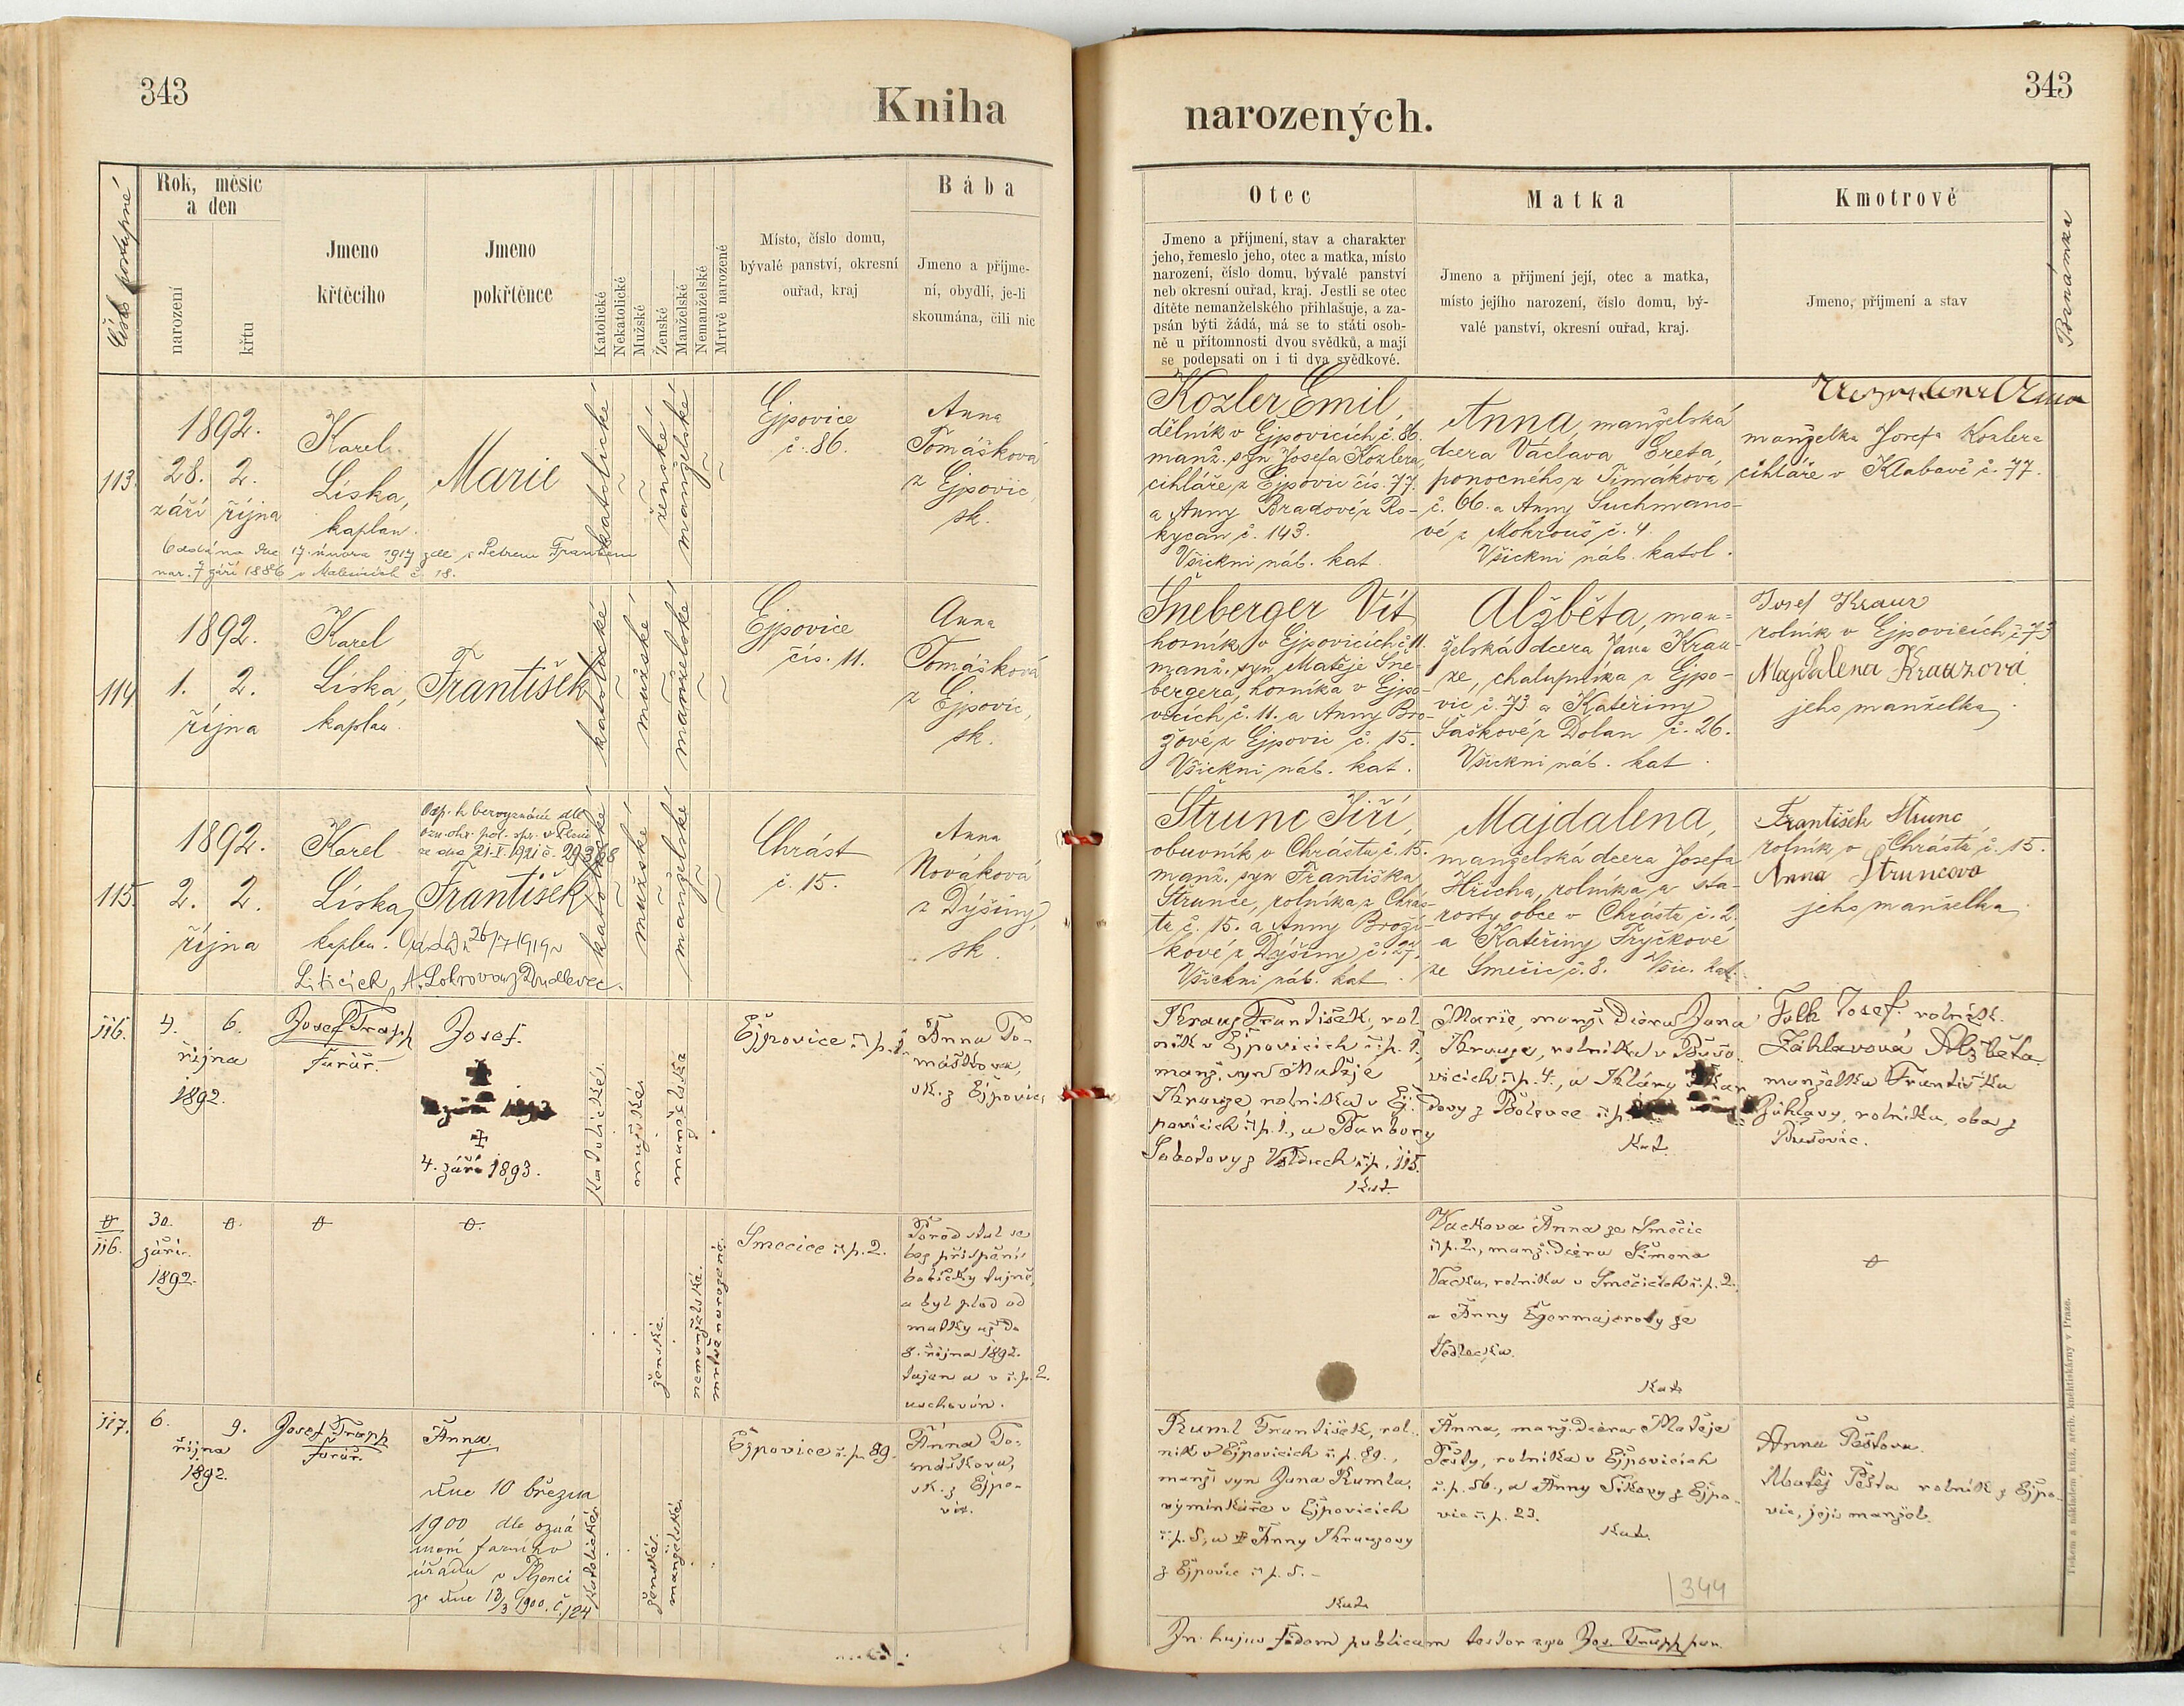 343
Kniha
Číslo postupné
Rok, měsíc
a den
narození
křtu
Jmeno
křtěcího
Jmeno
pokřtěnce
Katolické
Nekatolické
Mužské
Ženské
Manželské
Nemanželské
Mrtvě narozené
Místo, číslo domu,
bývalé panství, okresní
ouřad, kraj
Bába
Jmeno a příjme-
ní, obydlí, je-li
skoumána, čili nic
113.
1892.
28. 2.
září října
Karel
Líska,
kaplan.
Marie
katolické
ženské
manželské
Ejpovice
č. 86.
Anna
Tomášková
z Ejpovic,
sk.
17. února 1917 zde s Petrem
nar. 7 září 1886 v č. 18.
114
1892.
1. 2.
října
Karel
Líska,
kaplan.
František
katolické
mužské
manželské
Ejpovice
čís. 11.
Anna
Tomášková
z Ejpovic,
sk.
115.
1892.
2. 2.
října
Karel
Líska,
kaplan.
Odp. k bezvyznání dle
ozn. okr. pol. spr. v Plzni
ze dne 21.X.1921 č.
František
26/7 1919 v
Liticích
katolické
mužské
manželské
Chrást
č. 15.
Anna
Nováková
z Dýšiny,
sk.
116.
4. 6.
října
1892.
Josef Trapp
farář.
Josef.
4. září 1893.
Katolické.
mužské.
manželské
Ejpovice č. p. 1.
Anna To-
mášková,
sk. z Ejpovic,
116.
30.
září.
1892.
ženské.
nemanželské.
mrtvě narozené.
Smecice č. p. 2.
Porod stal se
bez přispění
babičky tajně,
a byl plod od
matky až do
8. října 1892.
tajen a v č. p. 2.
uschován.
117.
6. 9.
října
1892.
Josef Trapp
farář.
Anna
dne 10 března
1900 dle ozná
mení farního
úřadu v Plzenci
ze dne 13/3 1900. č. 124
Katolické.
ženské.
manželské.
Ejpovice č. p. 89.
Anna To-
mášková,
sk. z Ejpo-
vic.
343
narozených.
Otec
Jmeno a příjmení, stav a charakter
jeho, řemeslo jeho, otec a matka, místo
narození, číslo domu, bývalé panství
neb okresní ouřad, kraj. Jestli se otec
dítěte nemanželského přihlašuje, a za-
psán býti žádá, má se to státi osob-
ně u přítomnosti dvou svědků, a mají
se podepsati on i ti dva svědkové.
Matka
Jmeno a příjmení její, otec a matka,
místo jejího narození, číslo domu, bý-
valé panství, okresní ouřad, kraj.
Kmotrově
Jmeno, příjmení a stav
Poznámka
Kozler Emil,
dělník v Ejpovicích, č. 86.
manž. syn Josefa Kozlera,
cihláře z Ejpovic čís. 77.
a Anny Bradové z Ro-
kycan č. 143.
Všickni náb. kat.
Anna, manželská
dcera Václava Greta,
ponocného z Timákova,
č. 66. a Anny Suchmano-
vé z Mokrouš č. 4.
Všickni náb. katol.
manželka Josefa Kozlera
cihláře v Klabavě č. 77.
Šneberger Vít
horník v Ejpovicích č. 11.
manž. syn Matěje Šne-
bergera, horníka v Ejpo-
vicích č. 11. a Anny Bro-
žové z Ejpovic č. 15.
Všickni náb. kat.
Alžběta, man-
želská dcera Jana Krau-
ze, chalupníka z Ejpo-
vic č. 73 a Kateřiny
Šaškové z Dolan č. 26.
Všickni náb. kat.
Josef Krauz
rolník v Ejpovicích č. 73
Majdalena Krauzová
jeho manželka.
Štrunc Jiří,
obuvník v Chrástu č. 15.
manž. syn Františka
Štrunce, rolníka z Chrás-
tu č. 15. a Anny Broží-
kové z Dýšiny č. 27.
Všickni náb. kat.
Majdalena,
manželská dcera Josefa
Hřícha, rolníka a sta-
rosty obce v Chrástu č. 2.
a Kateřiny Fryčkové
ze Smečic č. 8. Všic. kat.
František Strunc
rolník v Chrástě č. 15.
Anna Struncova
jeho manželka.
Krauz František, rol-
ník v Ejpovicích č. p. 1.
manž. syn Matěje
Krauze rolníka v Ej-
povicích č. p. 1., a Barbory
Sobotovy z Volduch č. p. 115.
Kat.
Marie, manž. dcera Jana
Krauze, rolníka v Bušo-
vicích č. p. 4., a Kláry
z Bolevce č. p.
Kat.
Folk Josef rolník.
Záhlavová Alžběta
manželka Františka
Záhlavy, rolníka, oba z
Bušovic.
Vackova Anna ze Smečic
č. p. 2., manž. dcera Šimona
Vacka, rolníka v Smečicích č. p. 2.
a Anny Egermajerovy ze
Sedlecka.
Kat.
Ruml František, rol-
ník v Ejpovicích č. p. 89.,
manž. syn Jana Rumla,
výminkáře v Ejpovicích
č. p. 5., a Anny Krauzovy
z Ejpovic č. p. 5. –
Kat.
Anna, manž. dcera Matěje
Pešty, rolníka v Ejpovicích
č. p. 56., a Anny Síkovy z Ejpo-
vic č. p. 23.
Kat.
Anna Peštova.
Matěj Pešta rolník z Ejpo-
vic, její manžel.
344
In hujus fidem publicam testor ego Jos. Trapp par.
Tiskem a nákladem kníž. arcib. knihtiskárny v Praze.